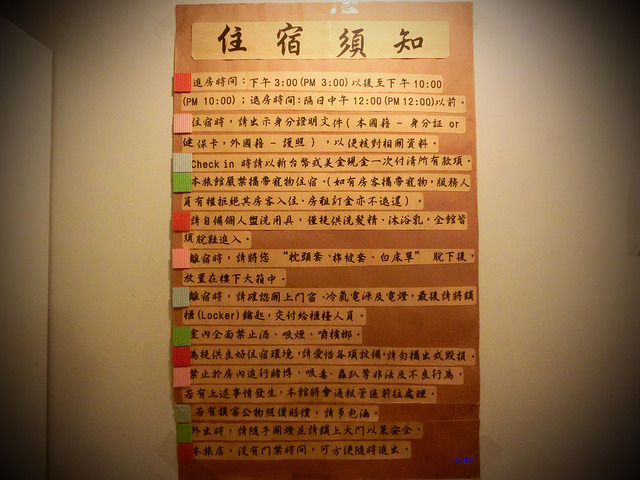 住宿須知
進房時間：下午3:00(PM 3:00)以後至下午10:00
(PM 10:00)；退房時間：隔日中午12:00(PM12:00)以前。
住宿時，請出示身分證明文件(本國籍－身分証 or
健保卡，外國籍－護照)，以便核對相關資料。
Check in 時請以新台幣或美金現金一次付清所有款項。
本旅館嚴禁攜帶寵物住宿。(如有房客攜帶寵物，服務人
員有權拒絕其房客入住、房租訂金亦不退還)。
請自備個人盥洗用具，僅提供洗髮精、沐浴乳，全館皆
須脫鞋進入。
離宿時，請將您“枕頭套、棉被套、白床單”脫下後，
放置在樓下大箱中。
離宿時，請確認關上門窗、冷氣電源及電燈，最後請將鎖
櫃(Locker)鑰匙，交付給櫃檯人員。
室內全面禁止酒、吸煙、嚼檳榔。
為提供良好住宿環境，請愛惜各項設備，請勿攜出或毀損。
禁止於房內進行賭博、吸毒、轟趴等非法及不良行為，
若有上述事情發生，本館將會通報管區前往處理。
若有損害公物照價賠償，請多包涵。
外出時，請隨手關燈並請鎖上大門以策安全。
本旅店，沒有門禁時間，可方便隨時進出。